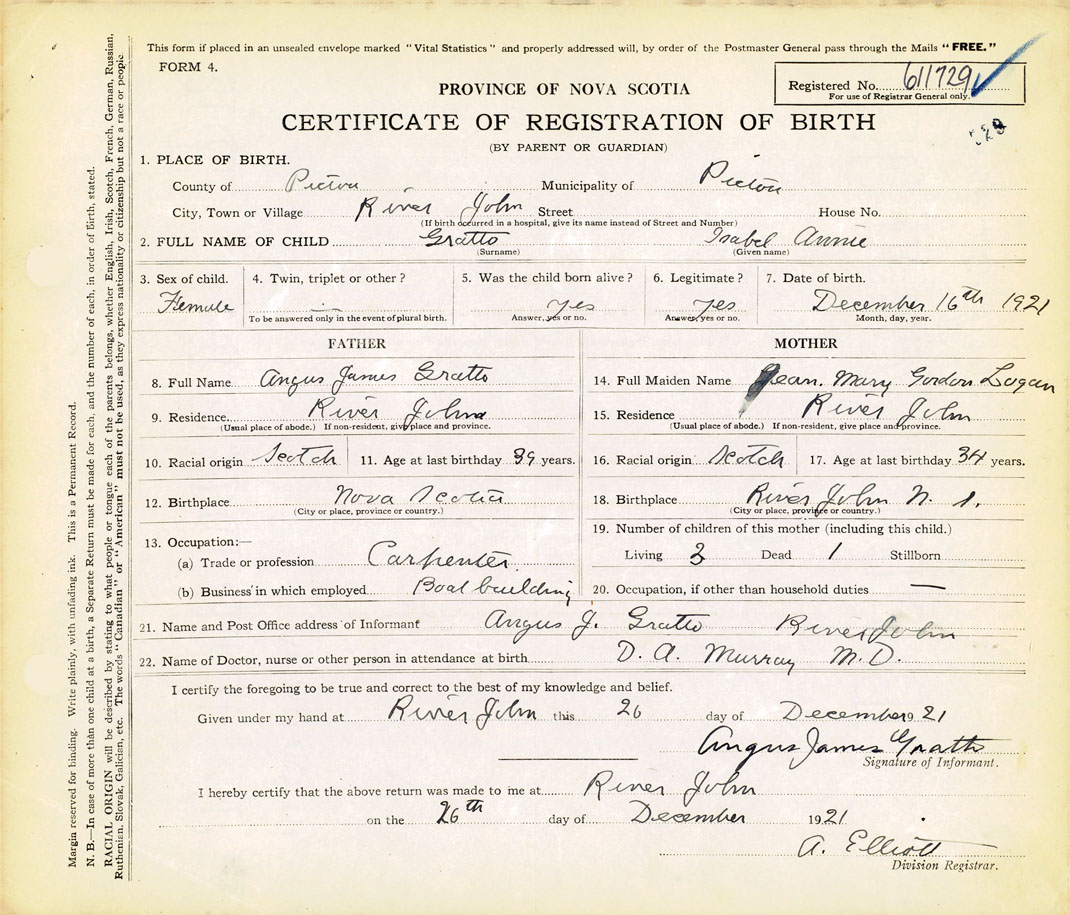 This form if placed in an unsealed envelope marked "Vital Statistics" and properly addressed will, by order of the Postmaster General pass through the Mails "FREE."
FORM 4.
Registered No. 611729
For use of Registrar General only.
PROVINCE OF NOVA SCOTIA
CERTIFICATE OF REGISTRATION OF BIRTH
(BY PARENT OR GUARDIAN)
1. PLACE OF BIRTH.
County of Pictou Municipality of Pictou
City, Town or Village River John Street House No.
(If birth occurred in a hospital, give its name instead of Street and Number)
2. FULL NAME OF CHILD Gratto Isabel Annie
(Surname) (Given name)
3. Sex of child. 4. Twin, triplet or other? 5. Was the child born alive? 6. Legitimate? 7. Date of birth.
Female — yes yes December 16th 1921
To be answered only in the event of plural birth. Answer, yes or no. Answer, yes or no. Month, day, year.
FATHER
8. Full Name Angus James Gratto
9. Residence River John
(Usual place of abode.) If non-resident, give place and province.
10. Racial origin Scotch 11. Age at last birthday 39 years.
12. Birthplace Nova Scotia
(City or place, province or country.)
13. Occupation:—
(a) Trade or profession Carpenter
(b) Business in which employed Boat building
MOTHER
14. Full Maiden Name Jean. Mary Gordon Logan
15. Residence River John
(Usual place of abode.) If non-resident, give place and province.
16. Racial origin Scotch 17. Age at last birthday 34 years.
18. Birthplace River John N. S.
(City or place, province or country.)
19. Number of children of this mother (including this child.)
Living 3 Dead 1 Stillborn
20. Occupation, if other than household duties —
21. Name and Post Office address of Informant Angus J. Gratto River John
22. Name of Doctor, nurse or other person in attendance at birth D. A. Murray M.D.
I certify the foregoing to be true and correct to the best of my knowledge and belief.
Given under my hand at River John this 26 day of December 1921
Angus James Gratto
Signature of Informant.
I hereby certify that the above return was made to me at River John
on the 26th day of December 1921
A. Elliott
Division Registrar.
Margin reserved for binding. Write plainly, with unfading ink. This is a Permanent Record.
N. B.—In case of more than one child at a birth, a Separate Return must be made for each, and the number of each, in order of birth, stated.
RACIAL ORIGIN will be described by stating to what people or tongue each of the parents belongs, whether English, Irish, Scotch, French, German, Russian,
Ruthenian, Slovak, Galician, etc. The words "Canadian" or "American" must not be used, as they express nationality or citizenship but not a race or people.